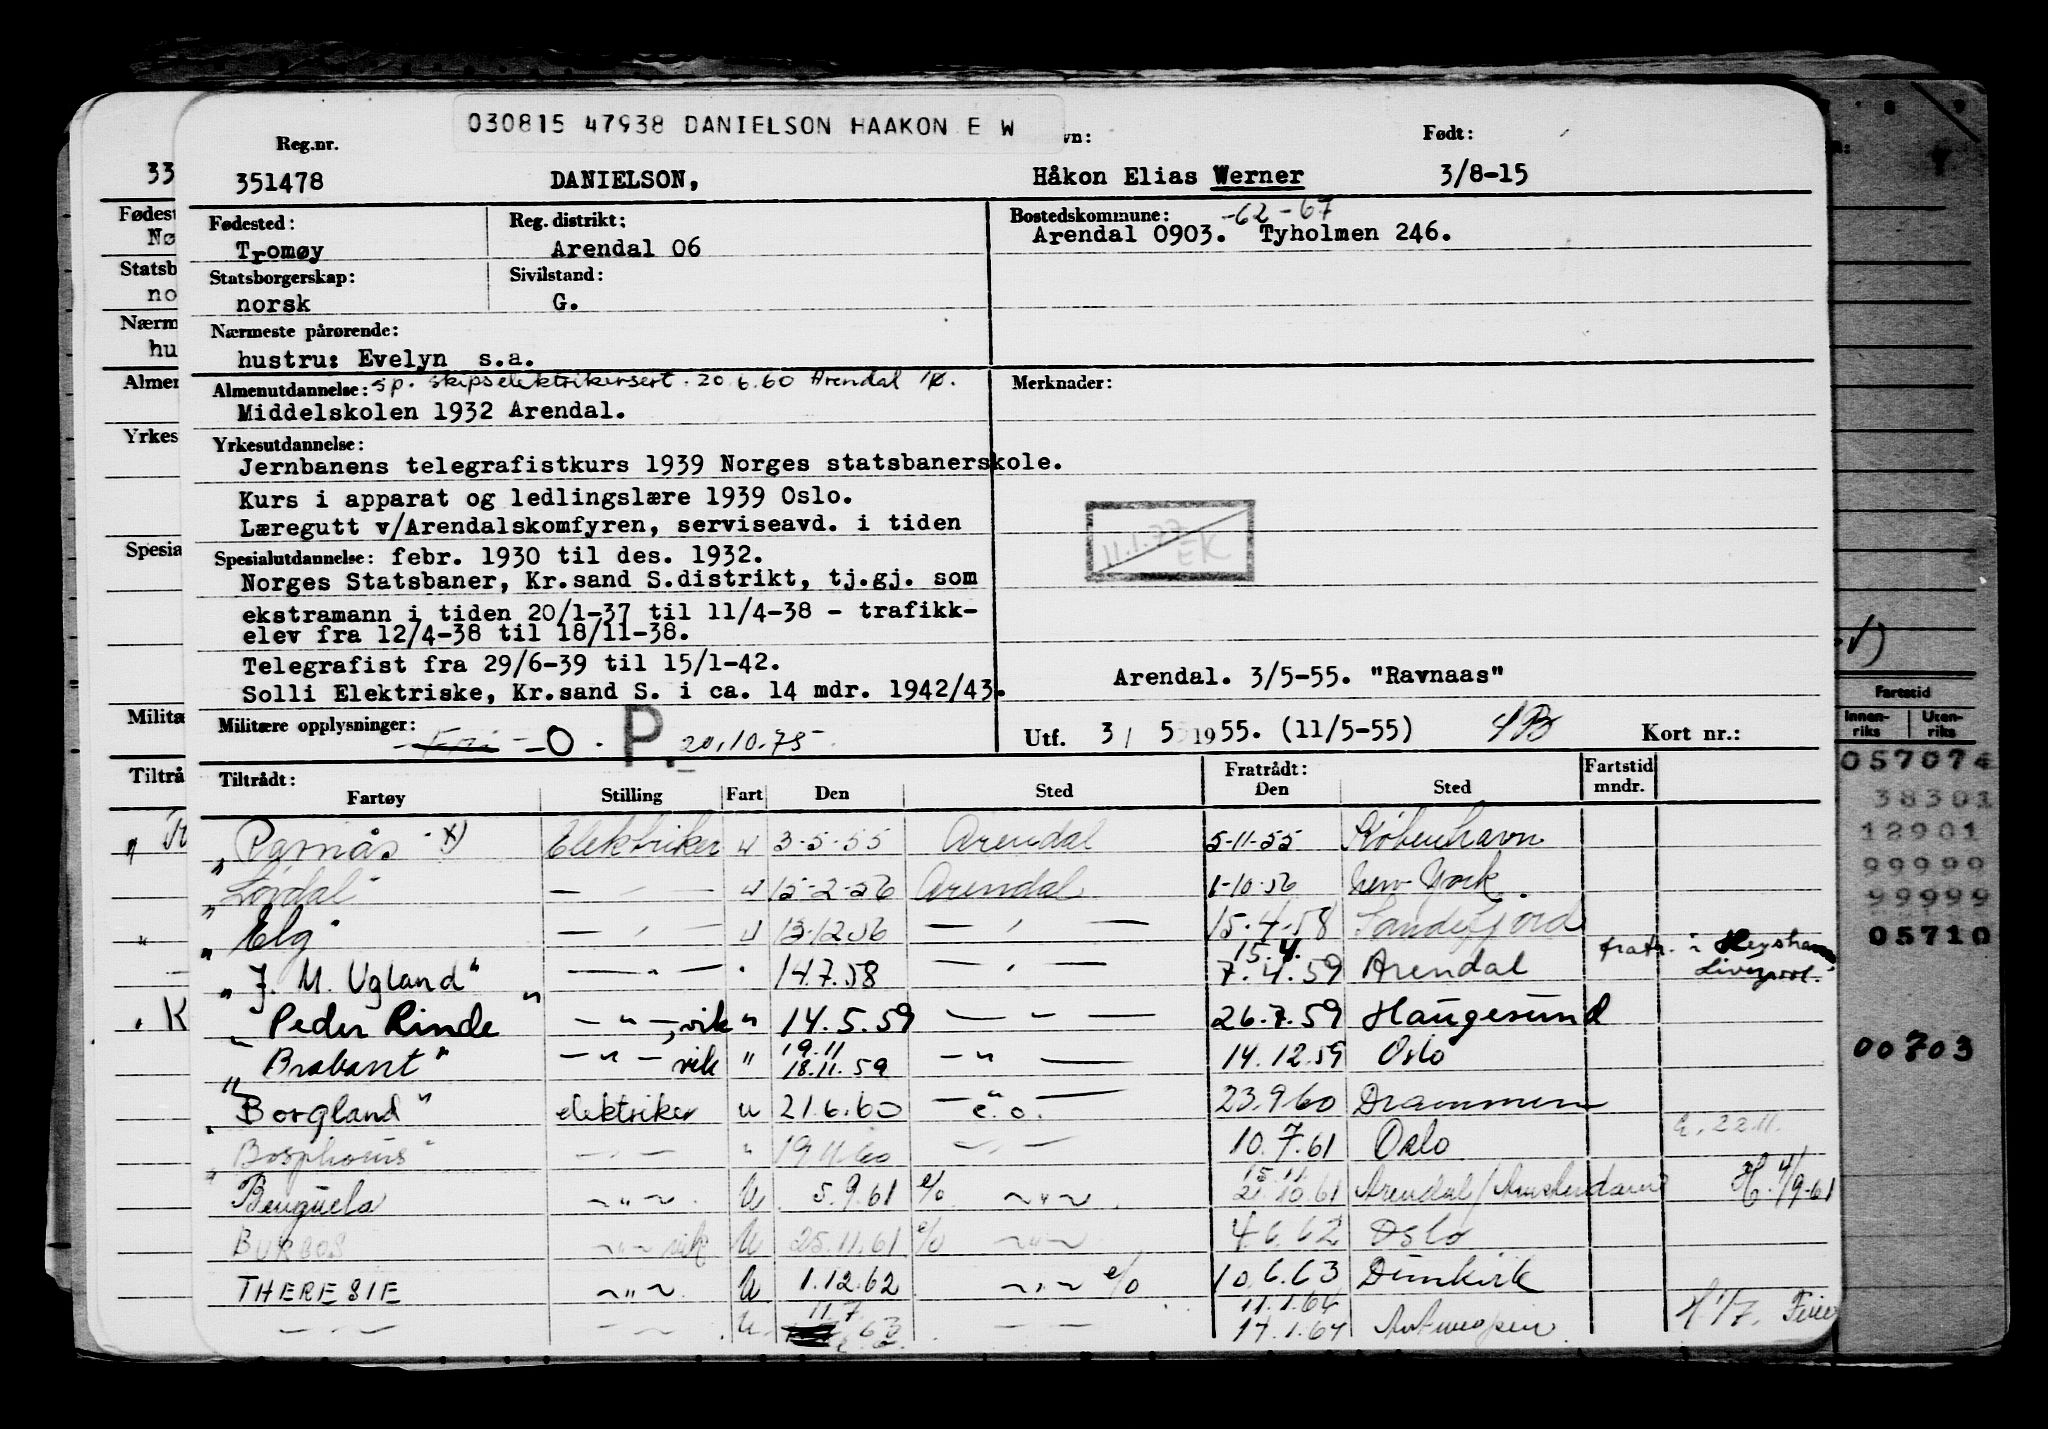 030815 47938 DANIELSON HAAKON E W
Reg.nr. Født:
351478 DANIELSON, Håkon Elias Werner 3/8-15
Fødested: Reg. distrikt: Bostedskommune: -62-67
Tromøy Arendal 06 Arendal 0903. Tyholmen 246.
Statsborgerskap: Sivilstand:
norsk G.
Nærmeste pårørende:
hustru: Evelyn s.a.
Almenutdannelse: sp. skipselektrikersert. 20.6.60 Arendal Merknader:
Middelskolen 1932 Arendal.
Yrkesutdannelse:
Jernbanens telegrafistkurs 1939 Norges statsbanerskole.
Kurs i apparat og ledlingslære 1939 Oslo.
Læregutt v/Arendalskomfyren, serviseavd. i tiden
Spesialutdannelse: febr. 1930 til des. 1932.
Norges Statsbaner, Kr.sand S.distrikt, tj.gj. som
ekstramann i tiden 20/1-37 til 11/4-38 - trafikk-
elev fra 12/4-38 til 18/11-38.
Telegrafist fra 29/6-39 til 15/1-42.
Solli Elektriske, Kr.sand S. i ca. 14 mdr. 1942/43.
11.1.77 EK
Arendal. 3/5-55. "Ravnaas"
Militære opplysninger: - O. P. 20.10.75
Utf. 3/ 5 1955. (11/5-55) Kort nr.:
Tiltrådt: Fratrådt: Fartstid
Fartøy Stilling Fart Den Sted Den Sted mndr.
Elektriker 3-5-55 Arendal 5-11-55 København
— " — 15-2-56 Arendal 1-10-56 New York
" Elg" — " — 13-12-56 — " — 15.4.58 Sandefjord
15.4.
" J. M. Ugland" — " — 14.7.58 — " — 7.4.59 Arendal fratr. i Heysham Liverpool.
" Peder Rinde" — " —, vik " 14.5.59 — " — 26.7.59 Haugesund
19.11
" Brabant" — " — vik " 18.11.59 — " — 14.12.59 Oslo
" Borgland" elektriker u 21.6.60 — " — e.o. 23.9.60 Drammen
" Bosphorus" — " — " 19.11.60 — " — 10.7.61 Oslo 22.11.
15.11
" Benguela ~ " ~ U 5.9.61 e/o ~ " ~ 21.10.61 Arendal / Amsterdam H. 4/9-61
BURGOS ~ " ~ vik U 25.11.61 e/o ~ " ~ 4.6.62 Oslo
THERESIE ~ " ~ U 1.12.62 ~ " ~ e/o 10.6.63 Dunkirk
11.7 11.1.64
— " — — " — U 63 — " — 17.1.64 Antwerpen H 1/7.
33
Fødest
Nø
Statsb
no
Nærm
hu
Almen
Yrkes
Spesia
Militæ
Tiltrå
K
Fartstid
Innen-riks Uten-riks
057074
38301
12901
99999
99999
05710
00703